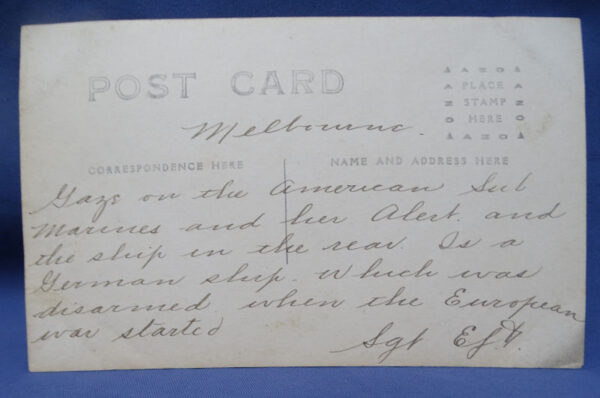 POST CARD
AZO
PLACE
STAMP
HERE
AZO
Melbourne.
CORRESPONDENCE HERE
NAME AND ADDRESS HERE
Gaze on the American Sub
Marines and her Alert. and
the ship in the rear. Is a
German ship. which was
disarmed when the European
war started
Sgt